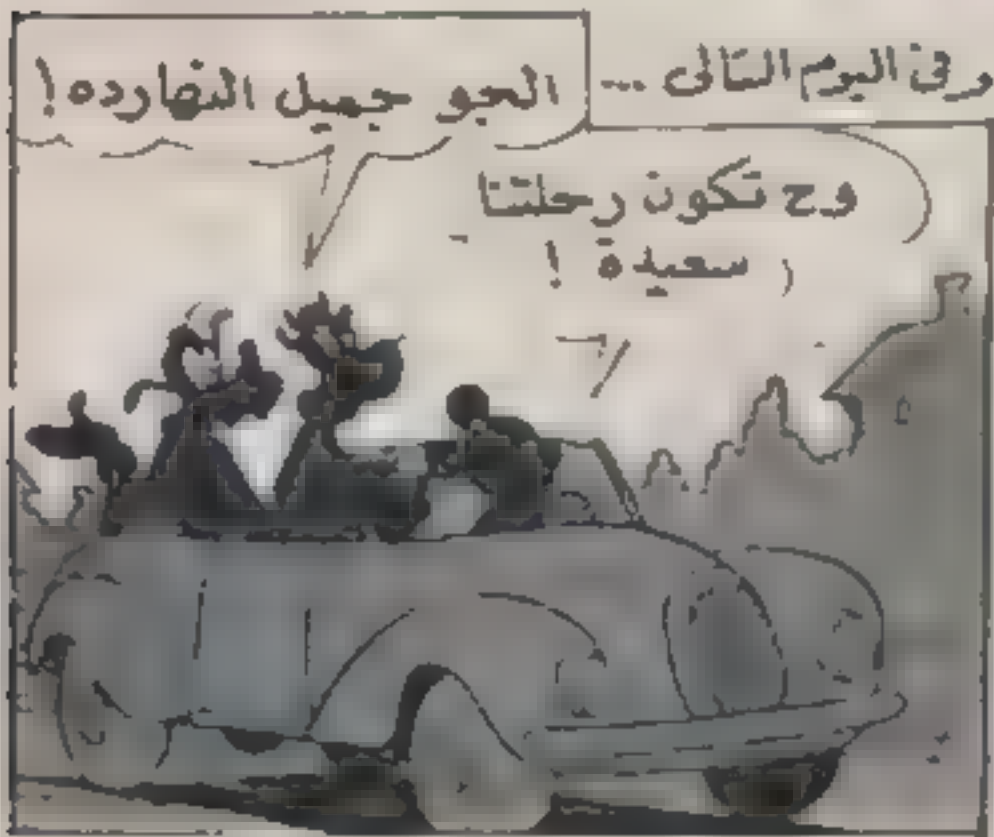 وفى اليوم التالى ...
الجو جميل النهارده!
وح تكون رحلتنا
سعيدة !